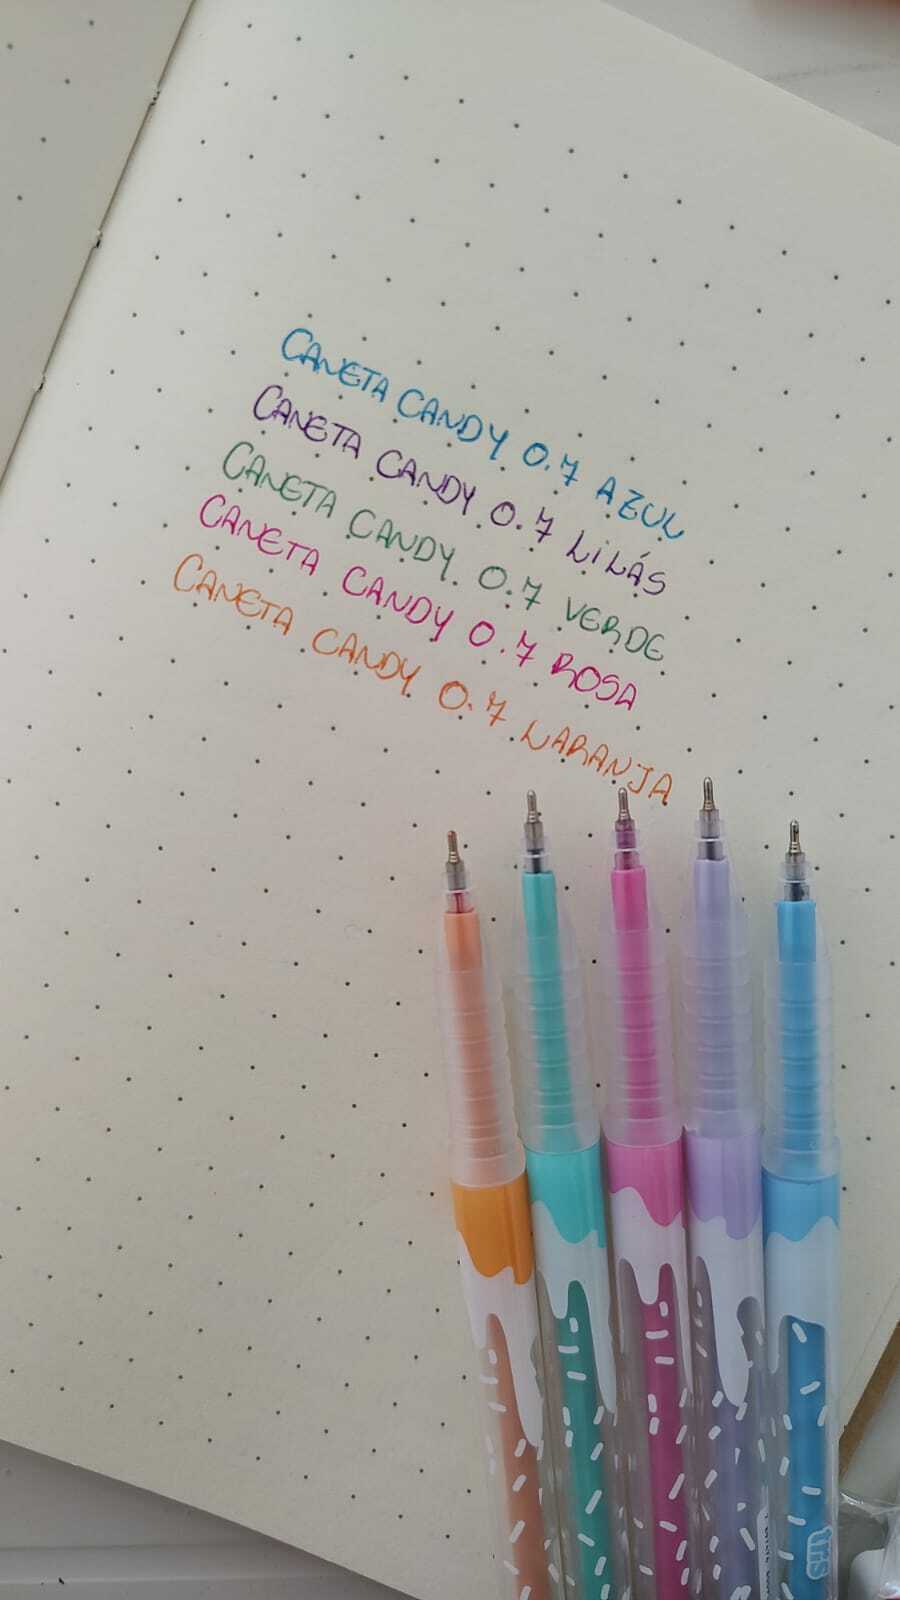 CANETA CANDY 0.7 AZUL
CANETA CANDY 0.7 LILÁS
CANETA CANDY 0.7 VERDE
CANETA CANDY 0.7 ROSA
CANETA CANDY 0.7 LARANJA
tris